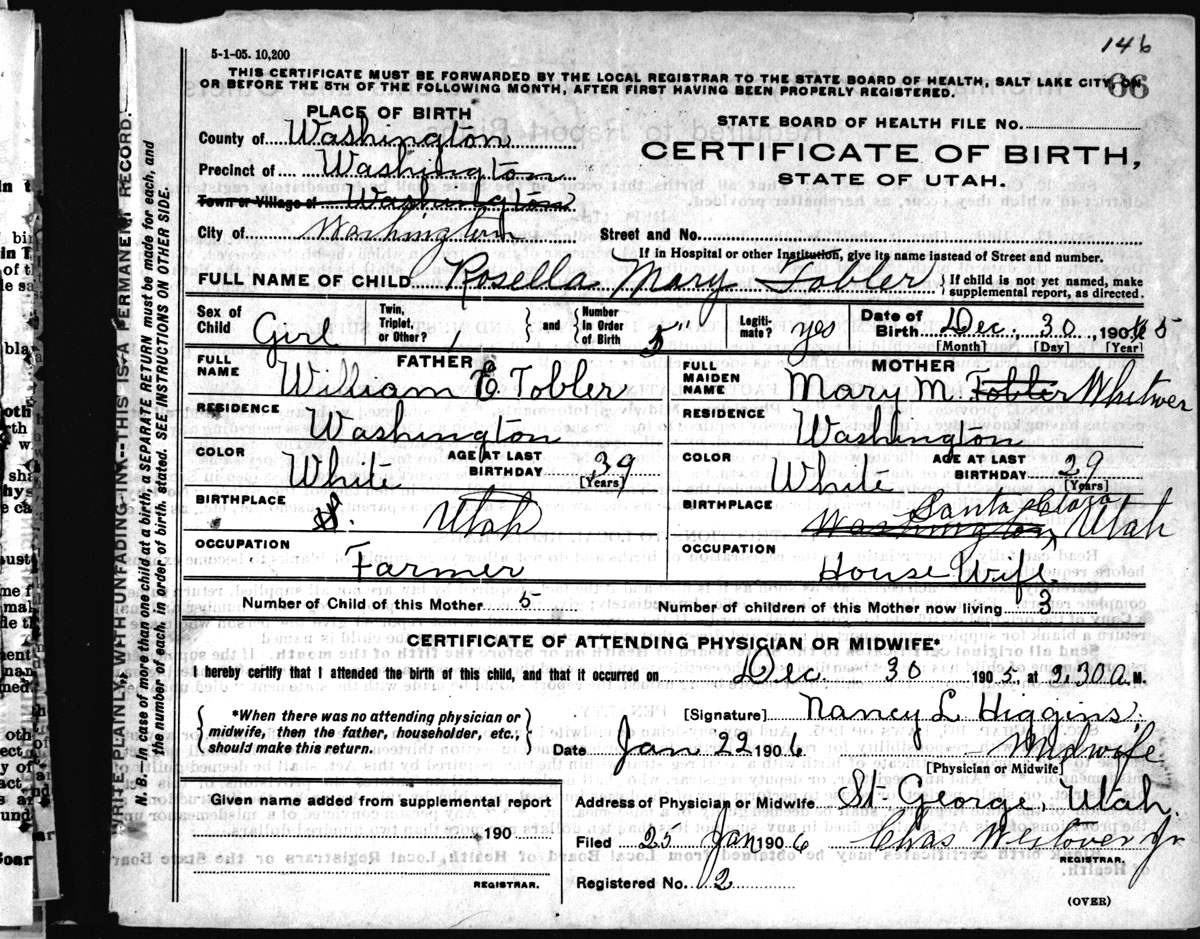 146
5-1-05. 10,200
66
THIS CERTIFICATE MUST BE FORWARDED BY THE LOCAL REGISTRAR TO THE STATE BOARD OF HEALTH, SALT LAKE CITY, ON
OR BEFORE THE 5TH OF THE FOLLOWING MONTH, AFTER FIRST HAVING BEEN PROPERLY REGISTERED.
PLACE OF BIRTH
STATE BOARD OF HEALTH FILE NO.
County of Washington
CERTIFICATE OF BIRTH,
Precinct of Washington
STATE OF UTAH.
Town or Village of Washington
City of Washington
Street and No.
If in Hospital or other Institution, give its name instead of Street and number.
FULL NAME OF CHILD Rosella Mary Tobler } If child is not yet named, make supplemental report, as directed.
Sex of Child Girl
Twin, Triplet, or Other? } and { Number in Order of Birth 5
Legitimate? yes
Date of Birth Dec. 30 1905
[Month] [Day] [Year]
FATHER
FULL NAME William E. Tobler
RESIDENCE Washington
COLOR White AGE AT LAST BIRTHDAY 39
[Years]
BIRTHPLACE Utah
OCCUPATION Farmer
MOTHER
FULL MAIDEN NAME Mary M. Tobler Whitwer
RESIDENCE Washington
COLOR White AGE AT LAST BIRTHDAY 29
[Years]
BIRTHPLACE Washington, Santa Clara Utah
OCCUPATION House Wife
Number of Child of this Mother 5 Number of children of this Mother now living 3
CERTIFICATE OF ATTENDING PHYSICIAN OR MIDWIFE*
I hereby certify that I attended the birth of this child, and that it occurred on Dec. 30 1905, at 9.30 a. M.
{ *When there was no attending physician or
midwife, then the father, householder, etc.,
should make this return. }
[Signature] Nancy L Higgins
Date Jan 22 1906 Midwife
[Physician or Midwife]
Given name added from supplemental report
190
REGISTRAR.
Address of Physician or Midwife St George, Utah.
Filed 25 Jan 1906 Chas Westover Jr
REGISTRAR.
Registered No. 2
(OVER)
WRITE PLAINLY, WITH UNFADING INK—THIS IS A PERMANENT RECORD.
N. B. In case of more than one child at a birth, a SEPARATE RETURN must be made for each, and
the number of each, in order of birth, stated. SEE INSTRUCTIONS ON OTHER SIDE.